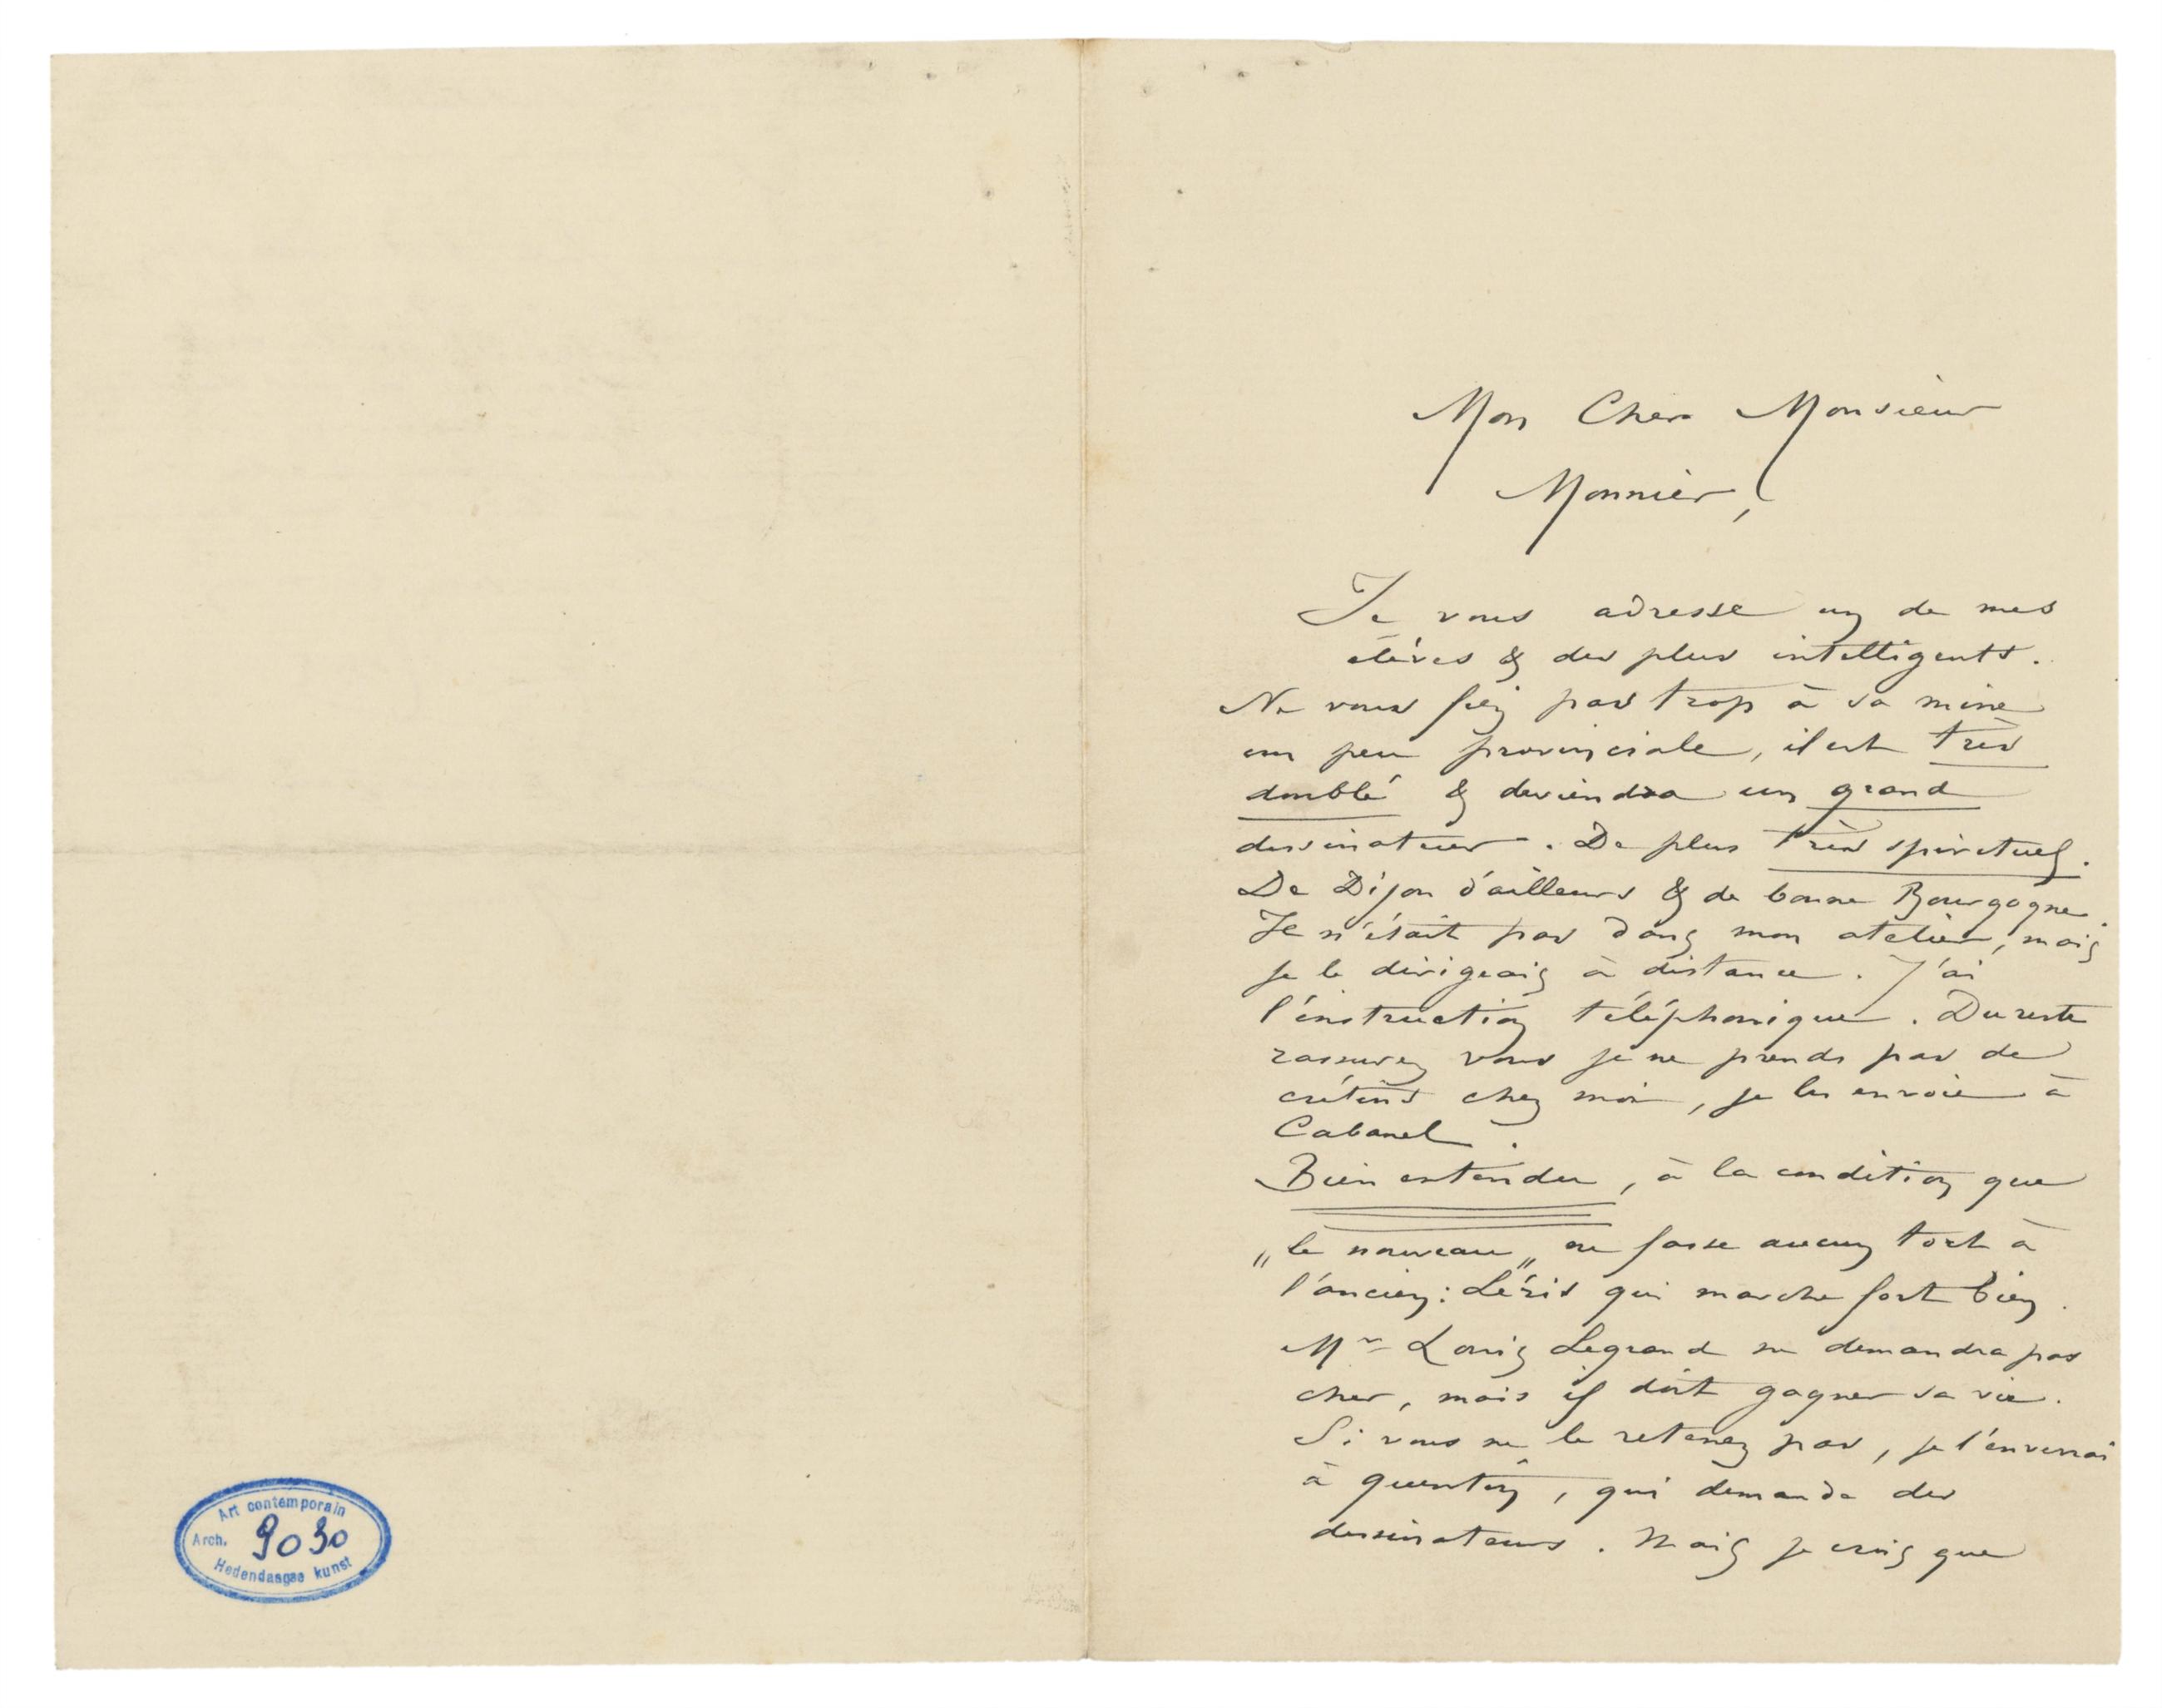 Mon Cher Monsieur
Monnier,
Je vous adresse un de mes
élèves & des plus intelligents.
Ne vous fiez pas trop à sa mine
un peu provinciale, il est très
doublé & deviendra un grand
dessinateur. De plus très spirituel.
De Dijon d'ailleurs & de bonne Bourgogne.
Je n'était pas dans mon atelier, mais
je le dirigeais à distance. J'ai
l'instruction téléphonique. Du reste
rassurez vous je ne prends pas de
crétins chez moi, je les envoie à
Cabanel.
Bien entendu, à la condition que
„le nouveau„ ne fasse aucun tort à
l'ancien: Léris qui marche fort bien.
Mr Louis Legrand ne demandra pas
cher, mais il doit gagner sa vie.
Si vous ne le retenez pas, je l'enverrai
à quentin, qui demande des
dessinateurs. Mais je crois que
Art contemporain
Arch. 9030
Hedendaagse kunst